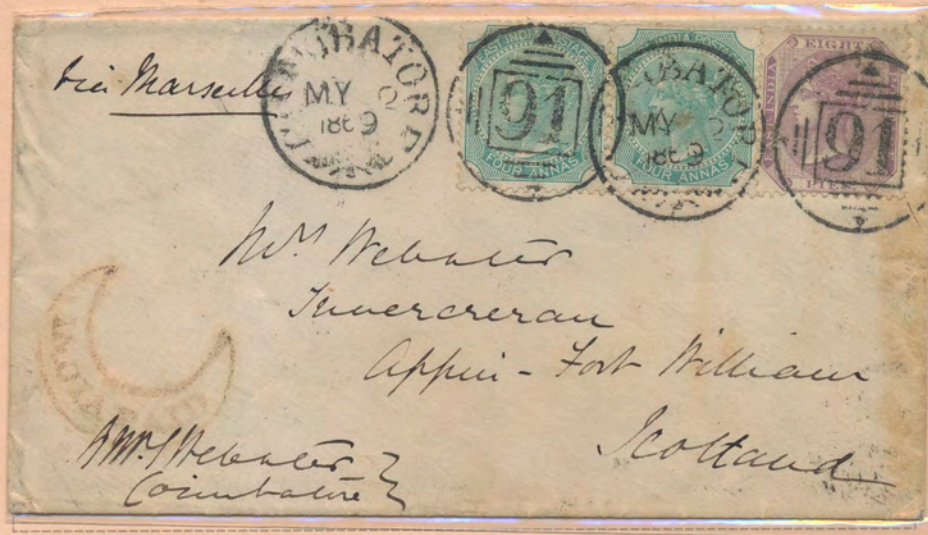 via Marseilles
COIMBATORE
MY
1869
EAST INDIA POSTAGE
91
FOUR ANNAS
INDIA POST
MY
1869
FOUR ANNAS
EIGHT
INDIA
91
PIES
Mrs Webster
Invercreran
Appin - Fort William
Scotland
Webster
Coimbatore